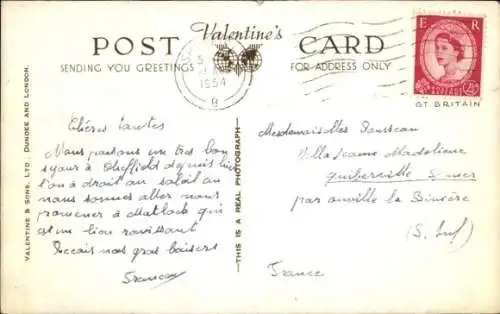 POST Valentine's CARD
SENDING YOU GREETINGS FOR ADDRESS ONLY
1954
E R
GT. BRITAIN
VALENTINE & SONS, LTD. DUNDEE AND LONDON.
THIS IS A REAL PHOTOGRAPH
Chères tantes
Nous passons un très bon
séjour à Sheffield depuis hier
l'on a droit au soleil
nous sommes allés nous
promener à Matlock qui
est un lieu ravissant
Recevez nos gros baisers
Mesdemoiselles
Villa Jeanne Madeleine
Quiberville s/mer
par Ouville la Rivière
(S. Inf)
France